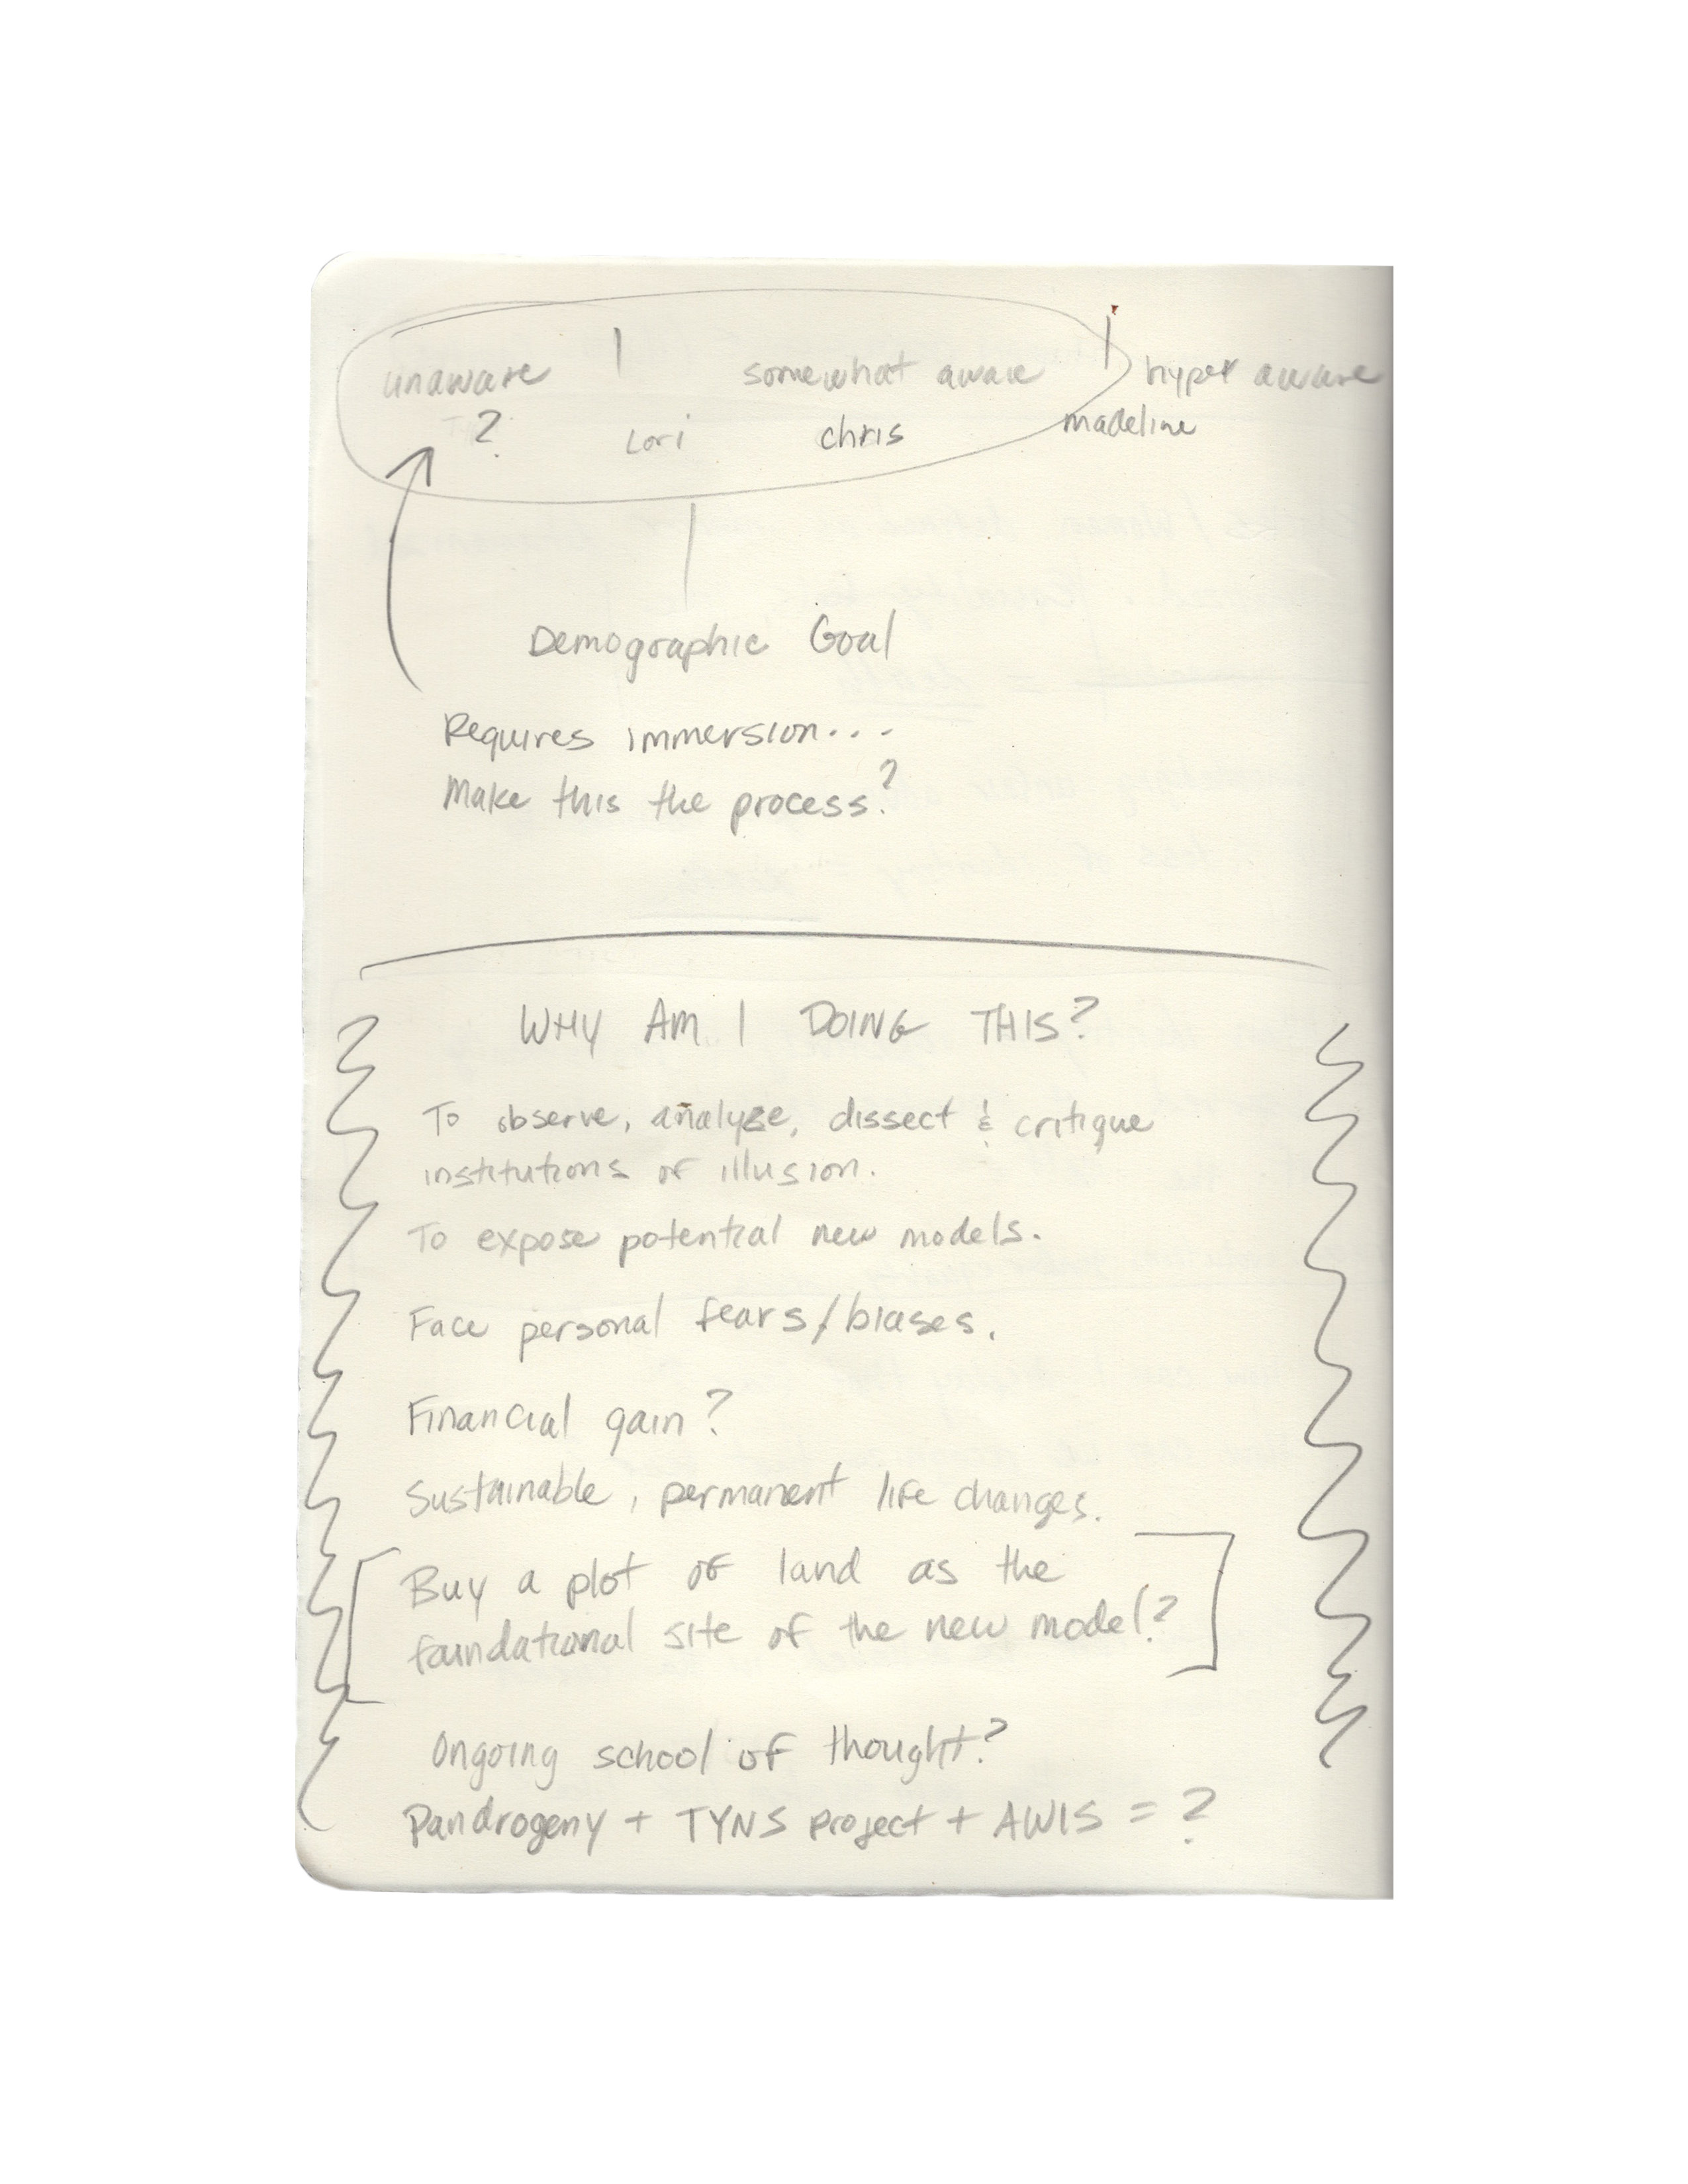 unaware | somewhat aware | hyper aware
? Lori chris madeline
Demographic Goal
Requires immersion...
Make this the process?
WHY AM I DOING THIS?
To observe, analyze, dissect & critique
institutions of illusion.
To expose potential new models.
Face personal fears/biases.
Financial gain?
Sustainable, permanent life changes.
[Buy a plot of land as the
foundational site of the new model?]
Ongoing school of thought?
Pandrogeny + TYNS project + AWIS = ?